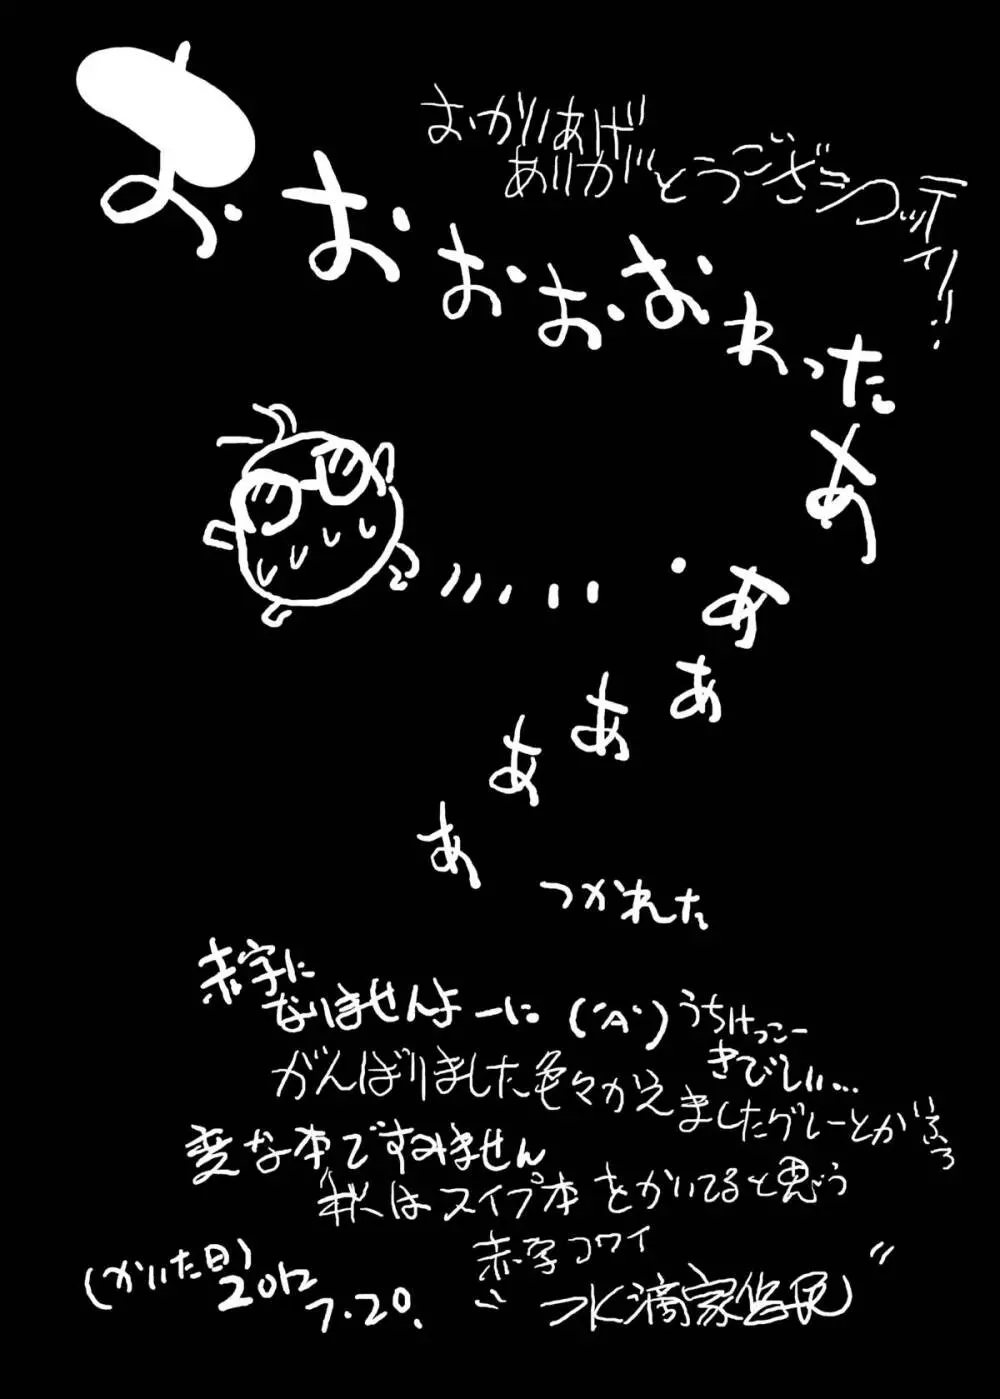 おかいあげ
ありがとうございコッティリー!
お・おおおおわった
あ
あ
あ
あ
あ
あ
つかれた
赤字に
なりませんよーに('A`)うちけっこー
きびしい…
がんばりました色々かえましたグレーとか
変な本ですみません
秋はスイプ本をかいてると思う
赤字コワイ
(かいた日)2012
7.20.
水滴家